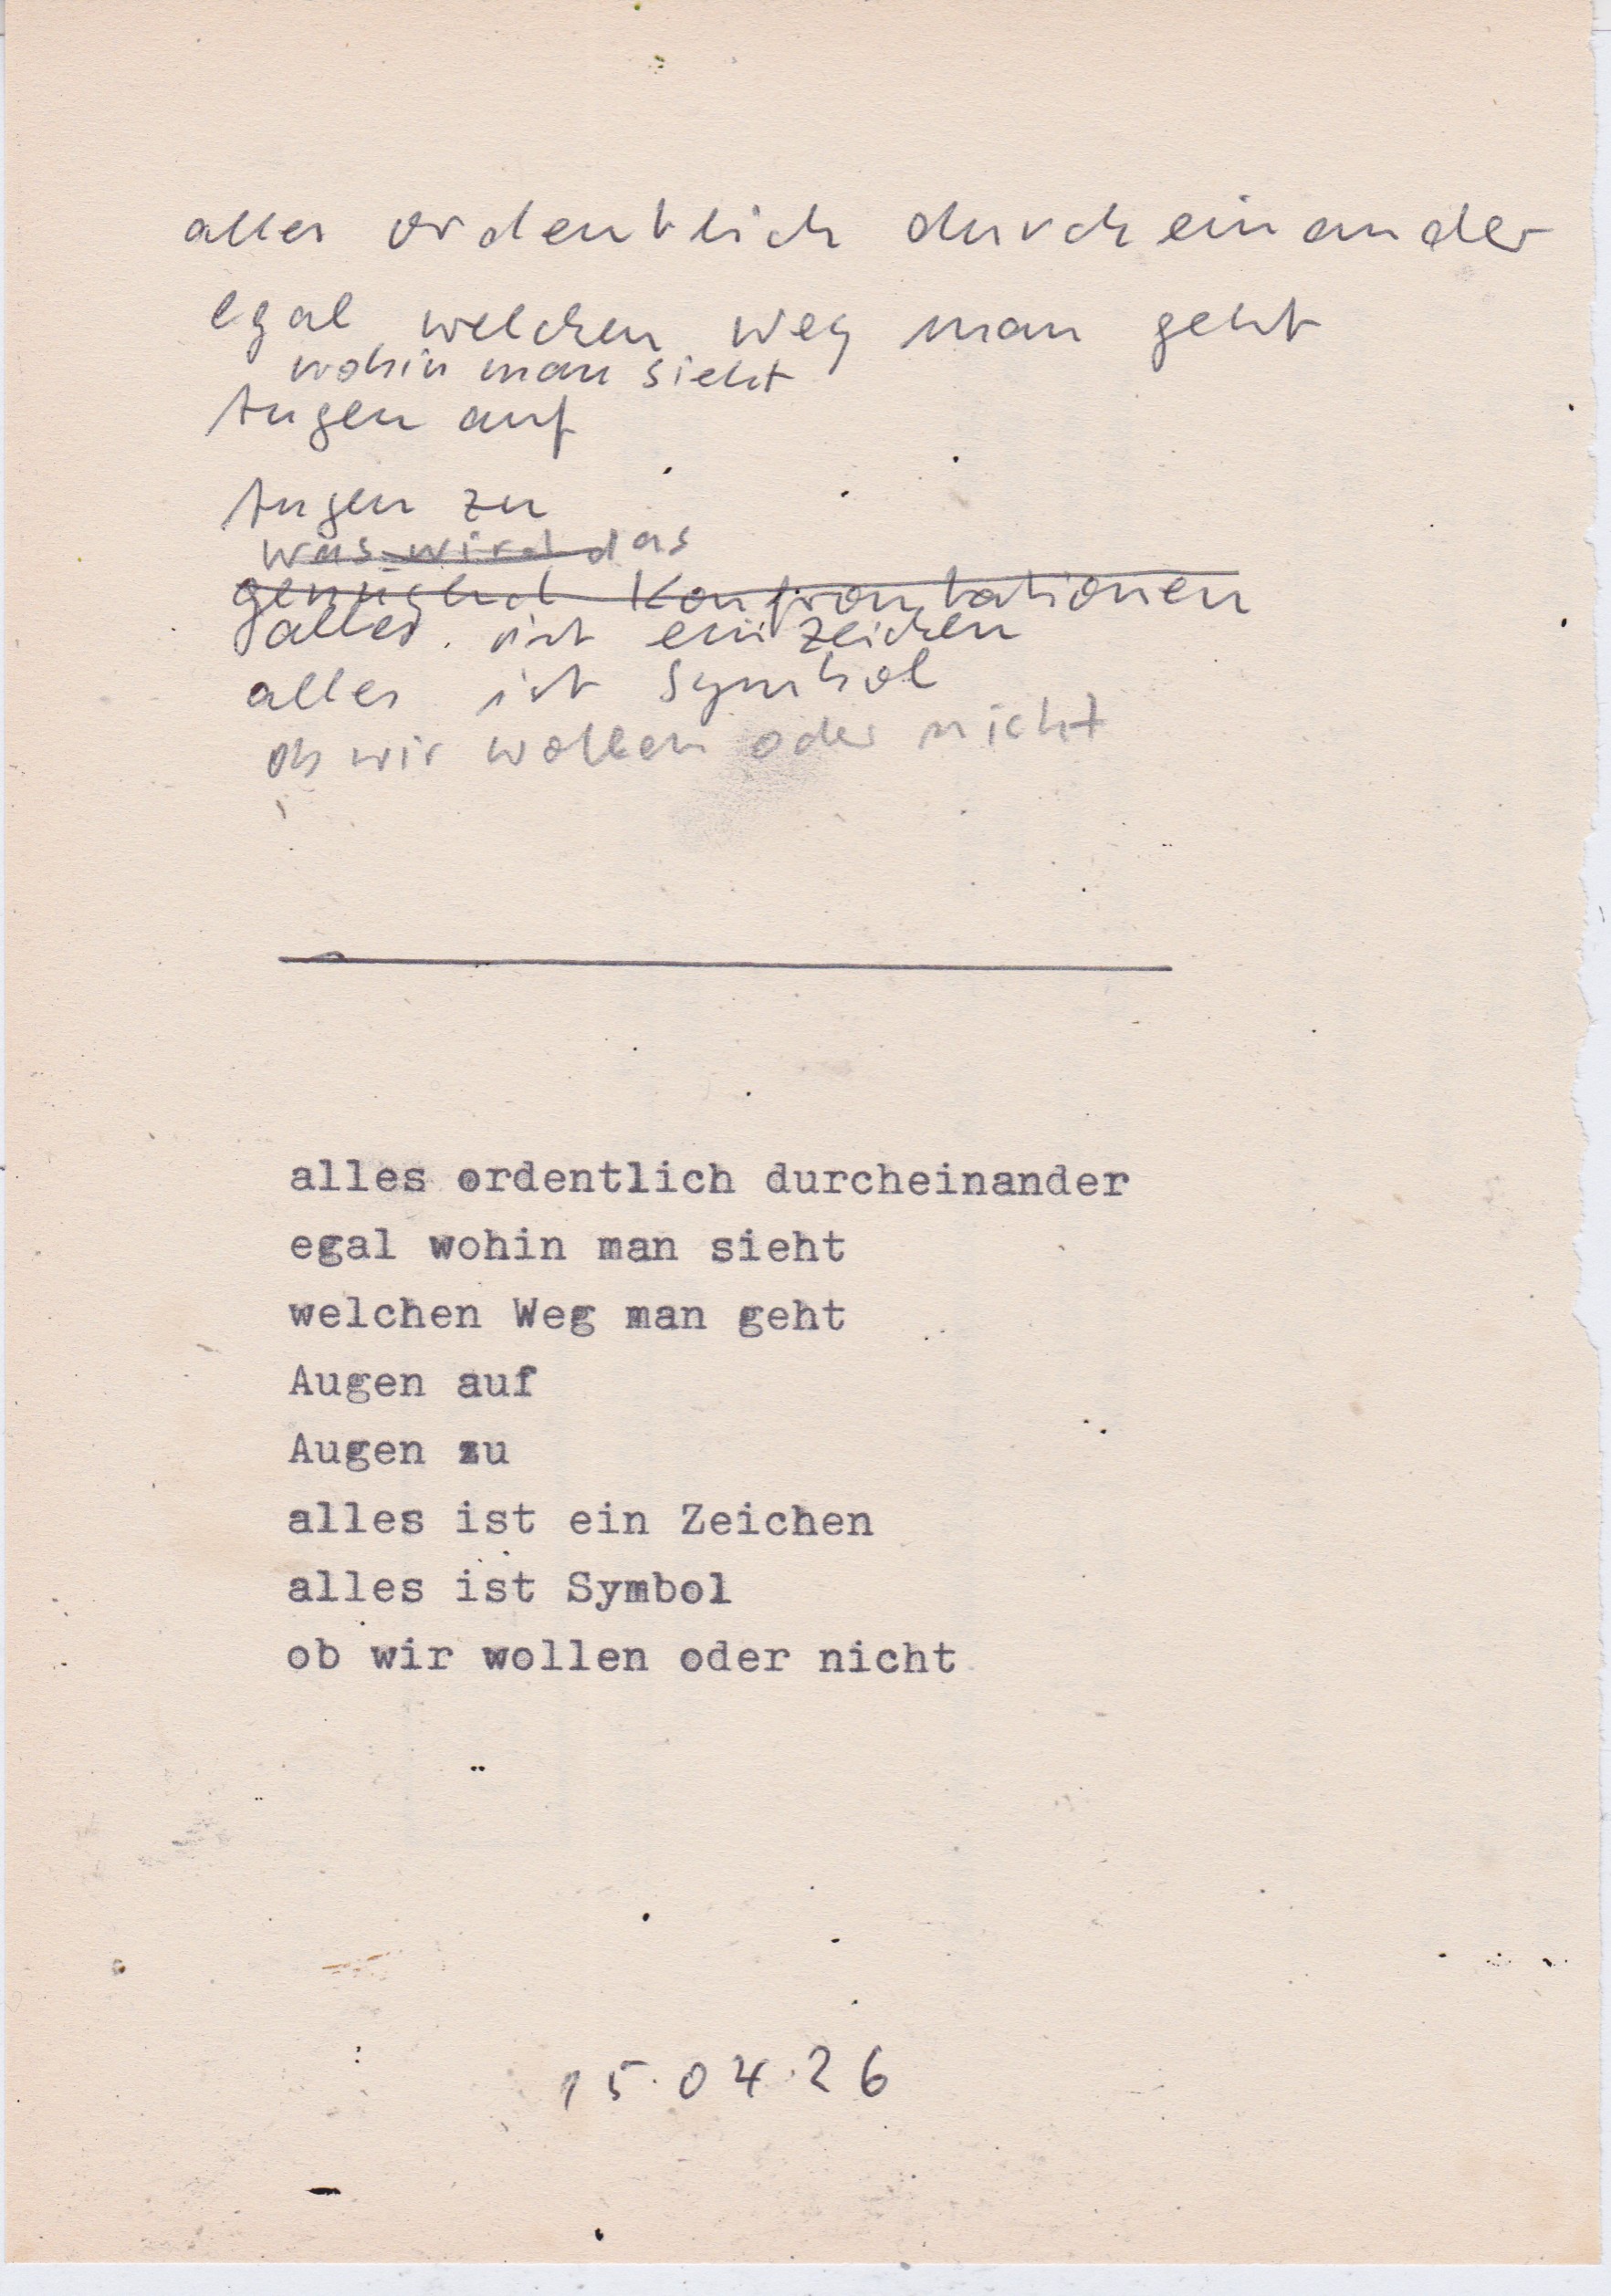 alles ordentlich durcheinander
egal welchen Weg man geht
wohin man sieht
Augen auf
Augen zu
was wird das
genügend Konfrontationen
alles ist ein Zeichen
alles ist Symbol
ob wir wollen oder nicht
alles ordentlich durcheinander
egal wohin man sieht
welchen Weg man geht
Augen auf
Augen zu
alles ist ein Zeichen
alles ist Symbol
ob wir wollen oder nicht
15.04.26